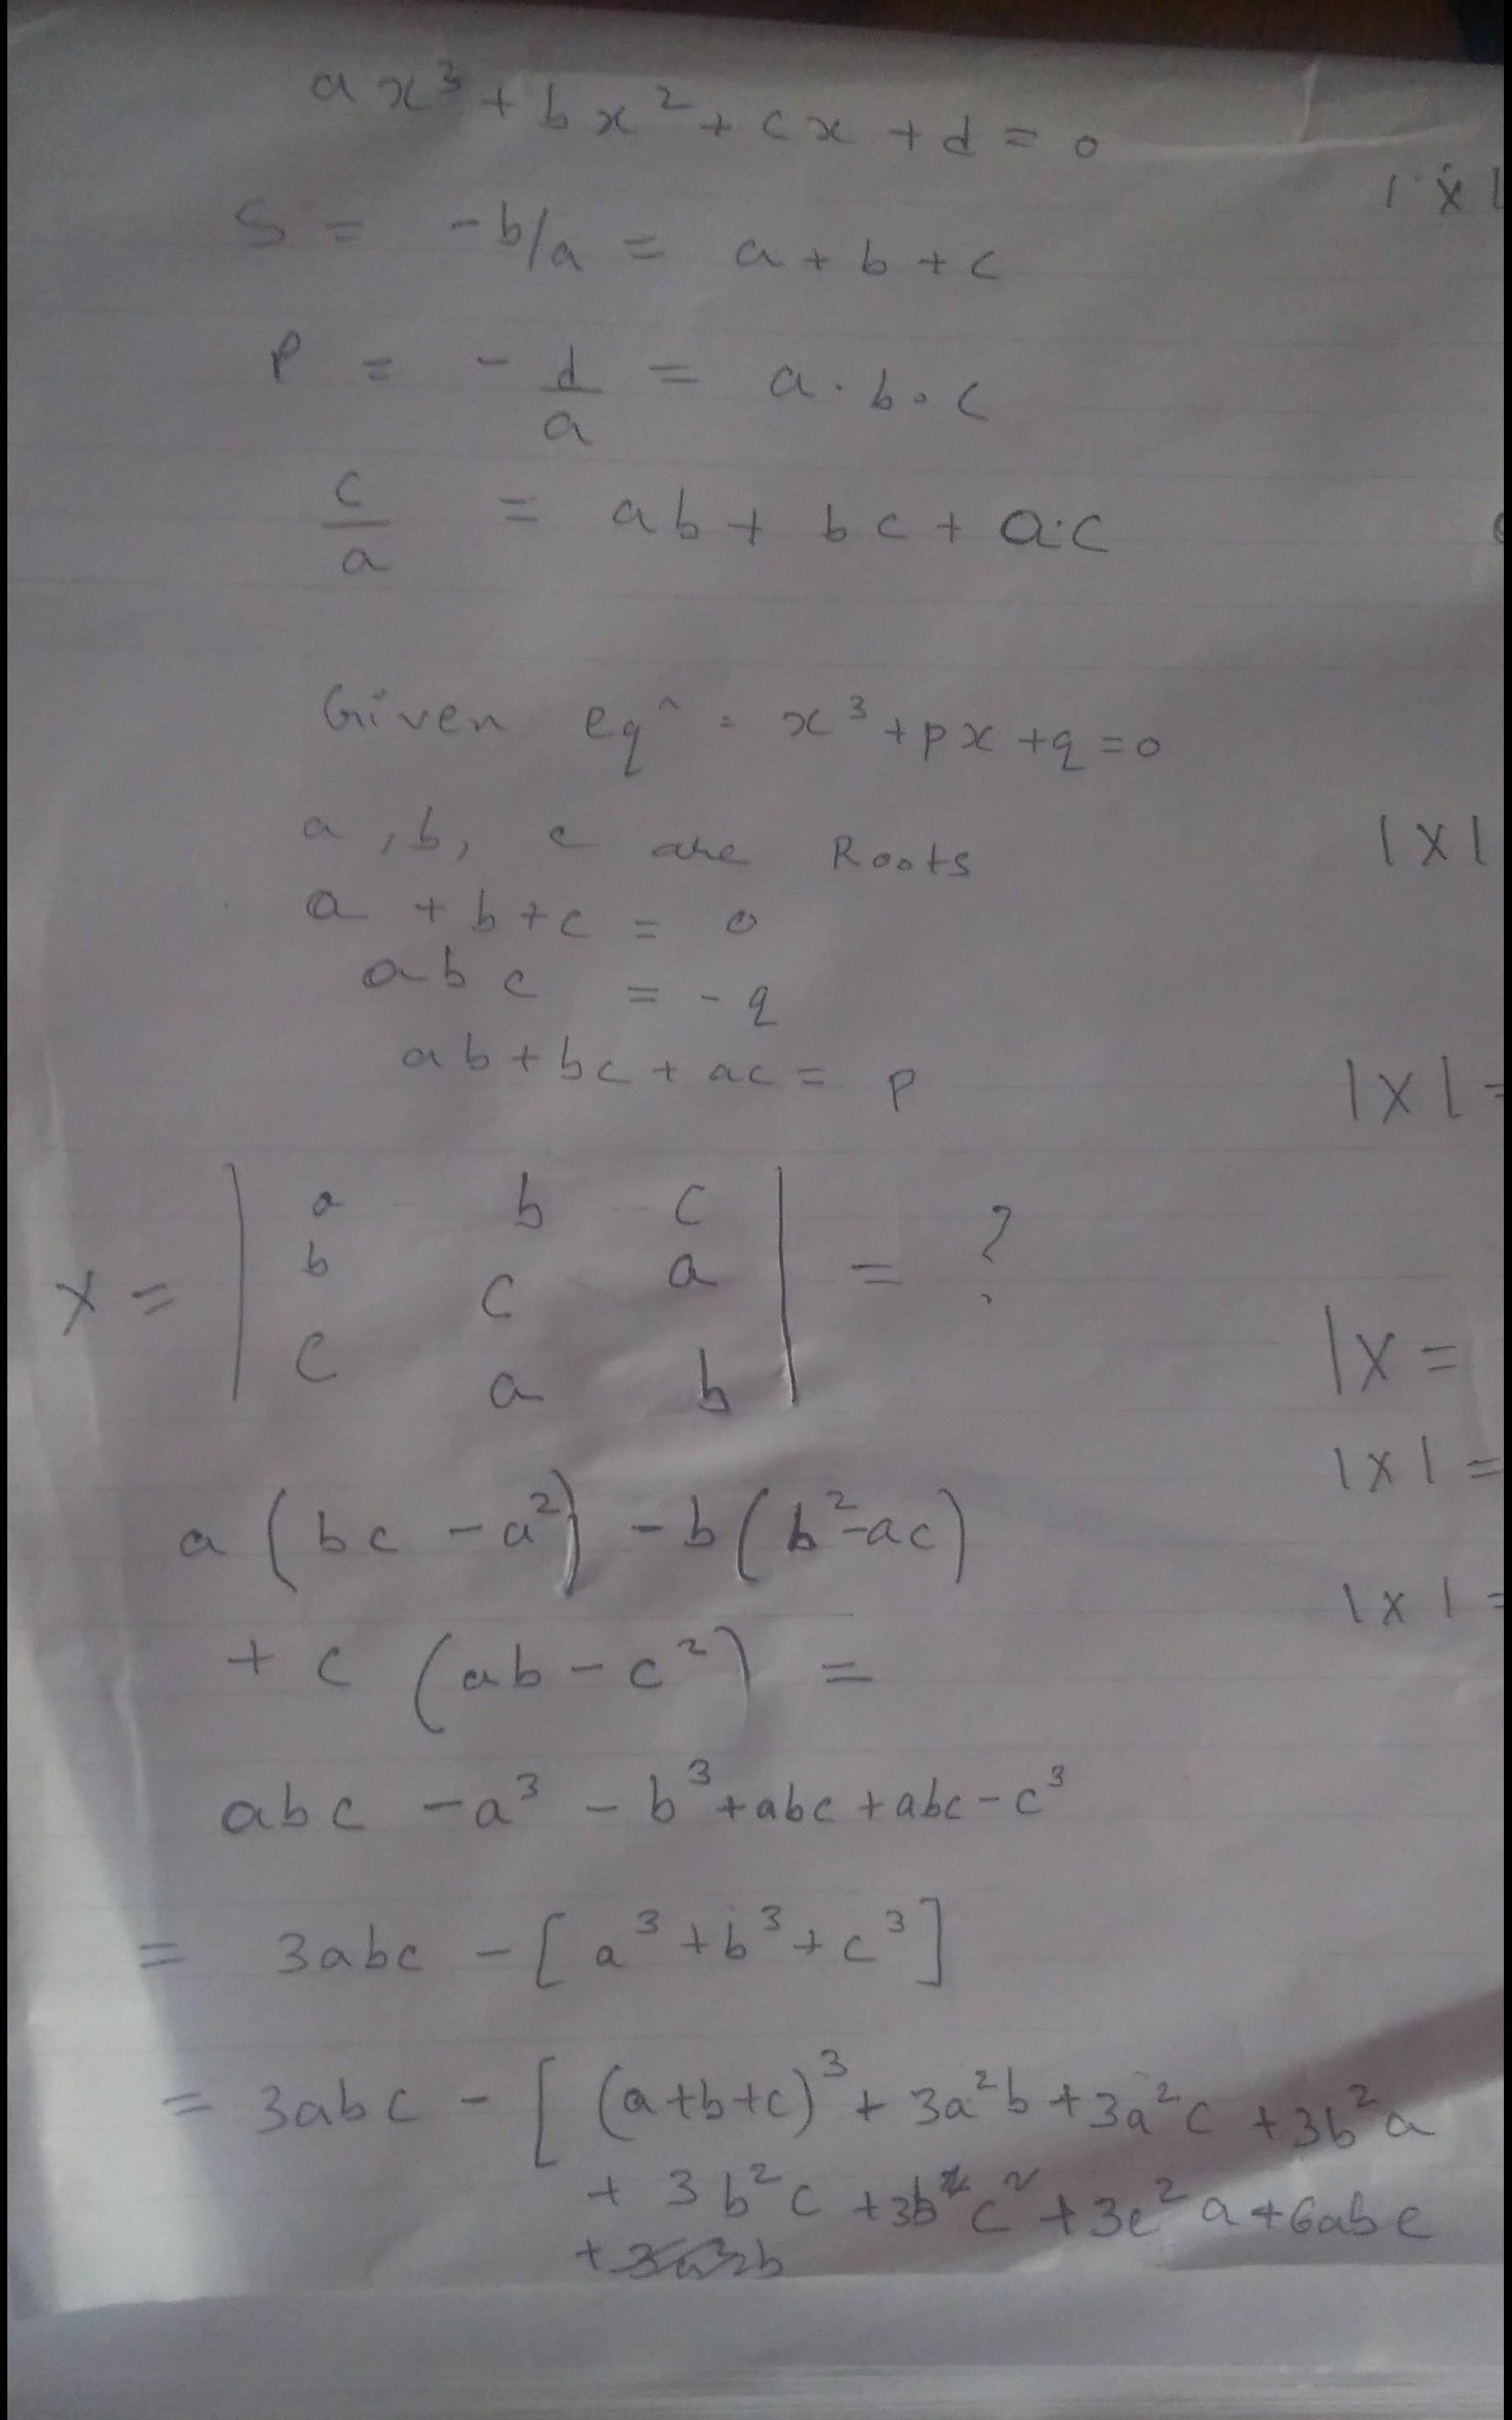 ax³ + bx² + cx + d = 0
S = -b/a = a + b + c
P = - d/a = a · b · c
c/a = ab + bc + a·c
Given eqⁿ = x³ + px + q = 0
a, b, c are Roots
a + b + c = 0
abc = - q
ab + bc + ac = p
X = | a b c |
| b c a | = ?
| c a b |
a (bc - a²) - b (b² - ac)
+ c (ab - c²) =
abc - a³ - b³ + abc + abc - c³
= 3abc - [a³ + b³ + c³]
= 3abc - [(a+b+c)³ + 3a²b + 3a²c + 3b²a
+ 3b²c + 3bc² + 3c²a + 6abc
|X|
|X|
|X| =
|X =
|X| =
|X| =